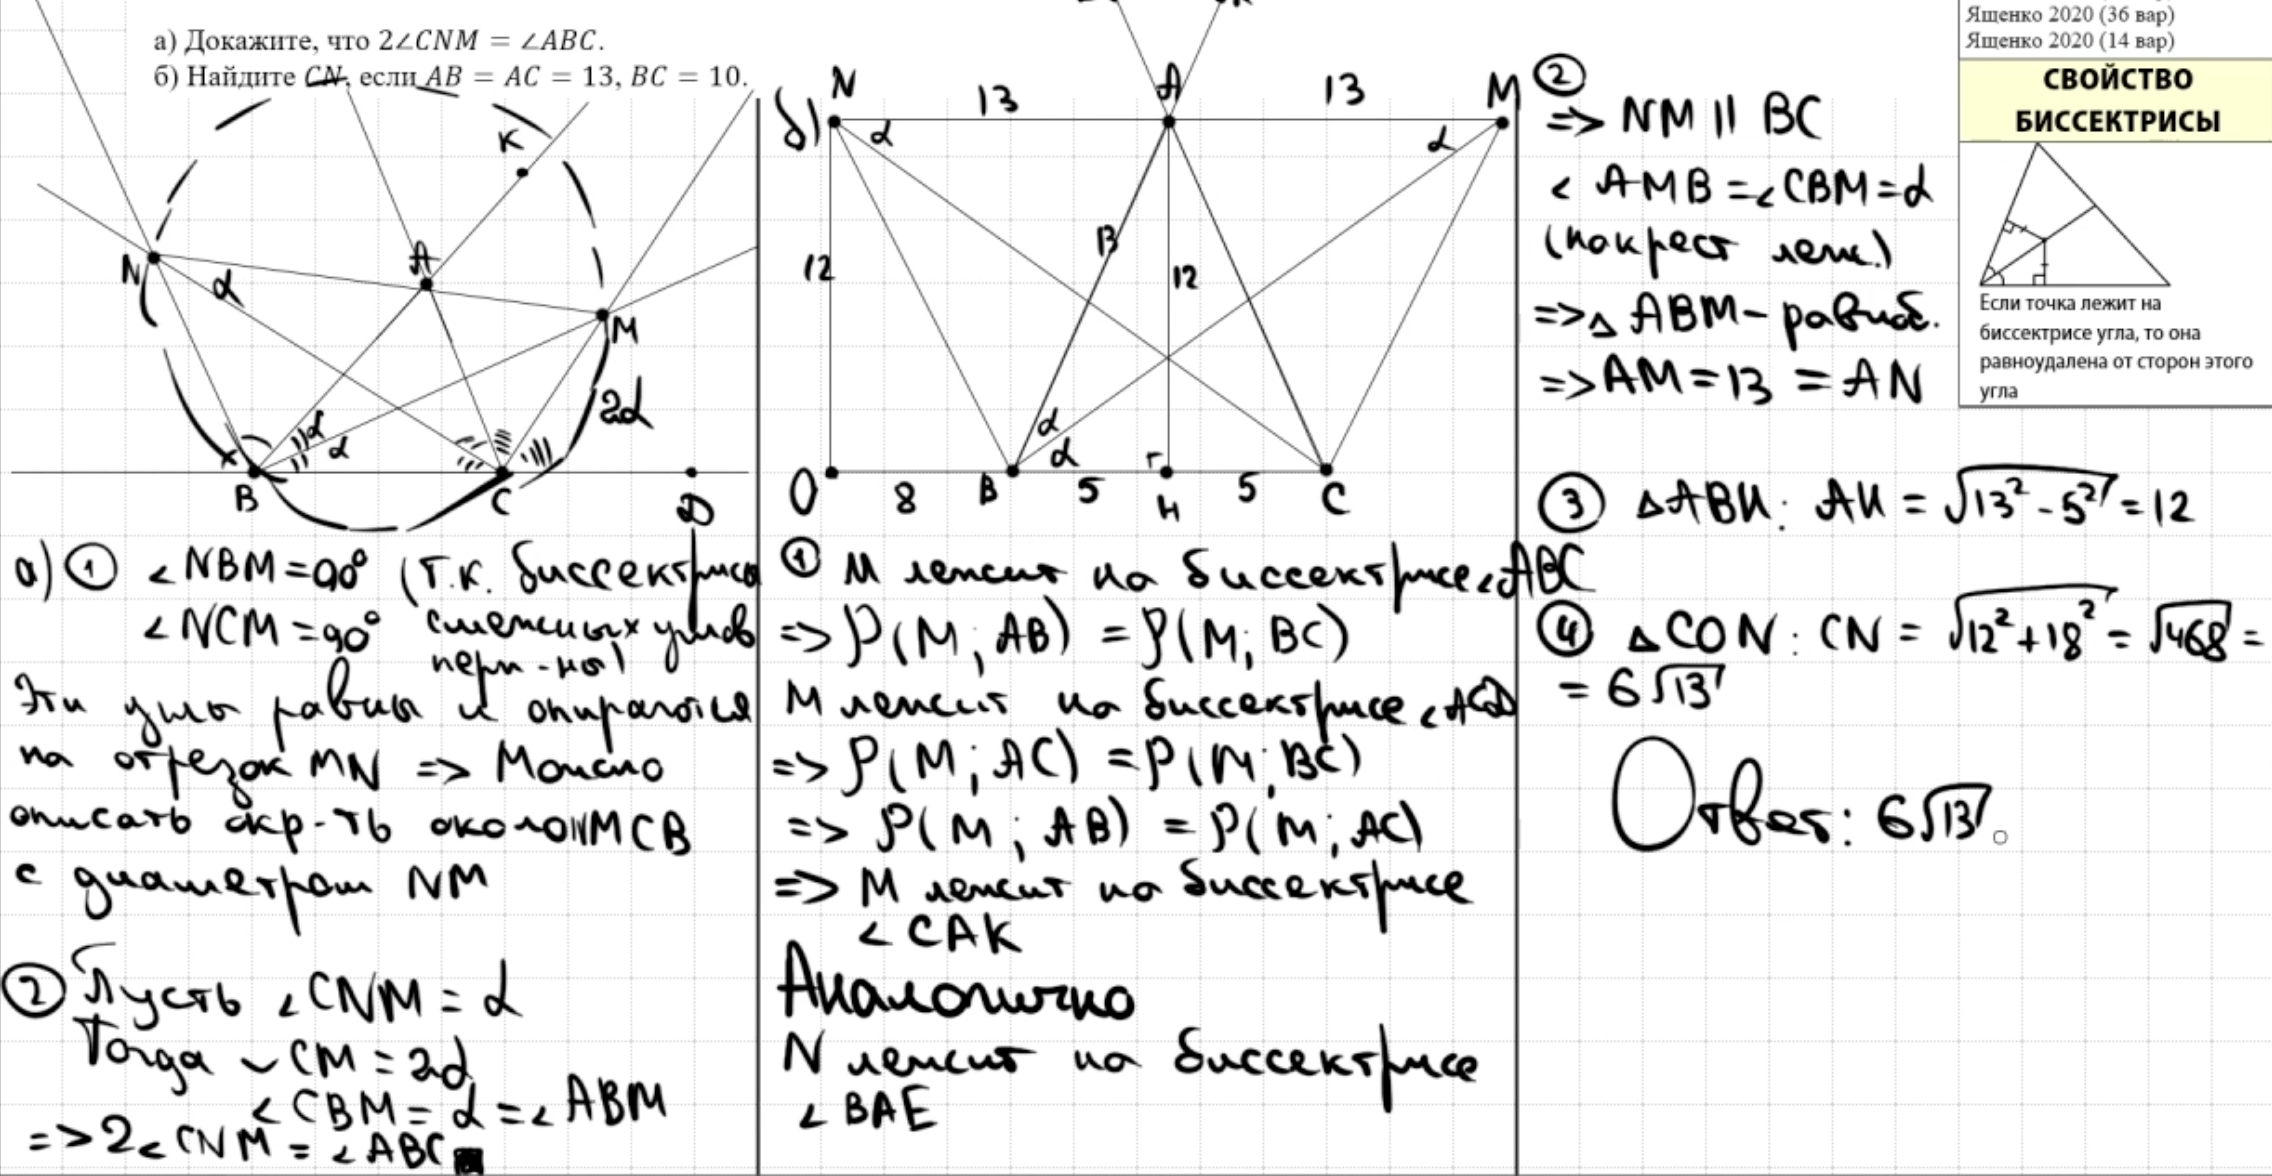 а) Докажите, что 2∠CNM = ∠ABC.
б) Найдите CN, если AB = AC = 13, BC = 10.
K
N
α
A
M
2α
α
α
x
B
C
D
а) ① ∠NBM=90° (т.к. биссектрисы
∠NCM=90° смежных углов
перп-ны)
Эти углы равны и опираются
на отрезок MN => Можно
описать окр-ть около NMCB
с диаметром NM
② Пусть ∠CNM = α
Тогда ◡CM = 2α
∠CBM = α = ∠ABM
=> 2∠CNM = ∠ABC
б)
N 13 A 13 M
α α
12 13 12
α
α
O 8 B 5 H 5 C
① M лежит на биссектрисе ∠ABC
=> ρ(M; AB) = ρ(M; BC)
M лежит на биссектрисе ∠ACD
=> ρ(M; AC) = ρ(M; BC)
=> ρ(M; AB) = ρ(M; AC)
=> M лежит на биссектрисе
∠CAK
Аналогично
N лежит на биссектрисе
∠BAE
②
=> NM || BC
∠AMB = ∠CBM = α
(накрест леж.)
=> △ABM – равноб.
=> AM = 13 = AN
③ △ABH: AH = √13² - 5² = 12
④ △CON: CN = √12² + 18² = √468 =
= 6√13
Ответ: 6√13.
Ященко 2020 (36 вар)
Ященко 2020 (14 вар)
СВОЙСТВО
БИССЕКТРИСЫ
Если точка лежит на
биссектрисе угла, то она
равноудалена от сторон этого
угла